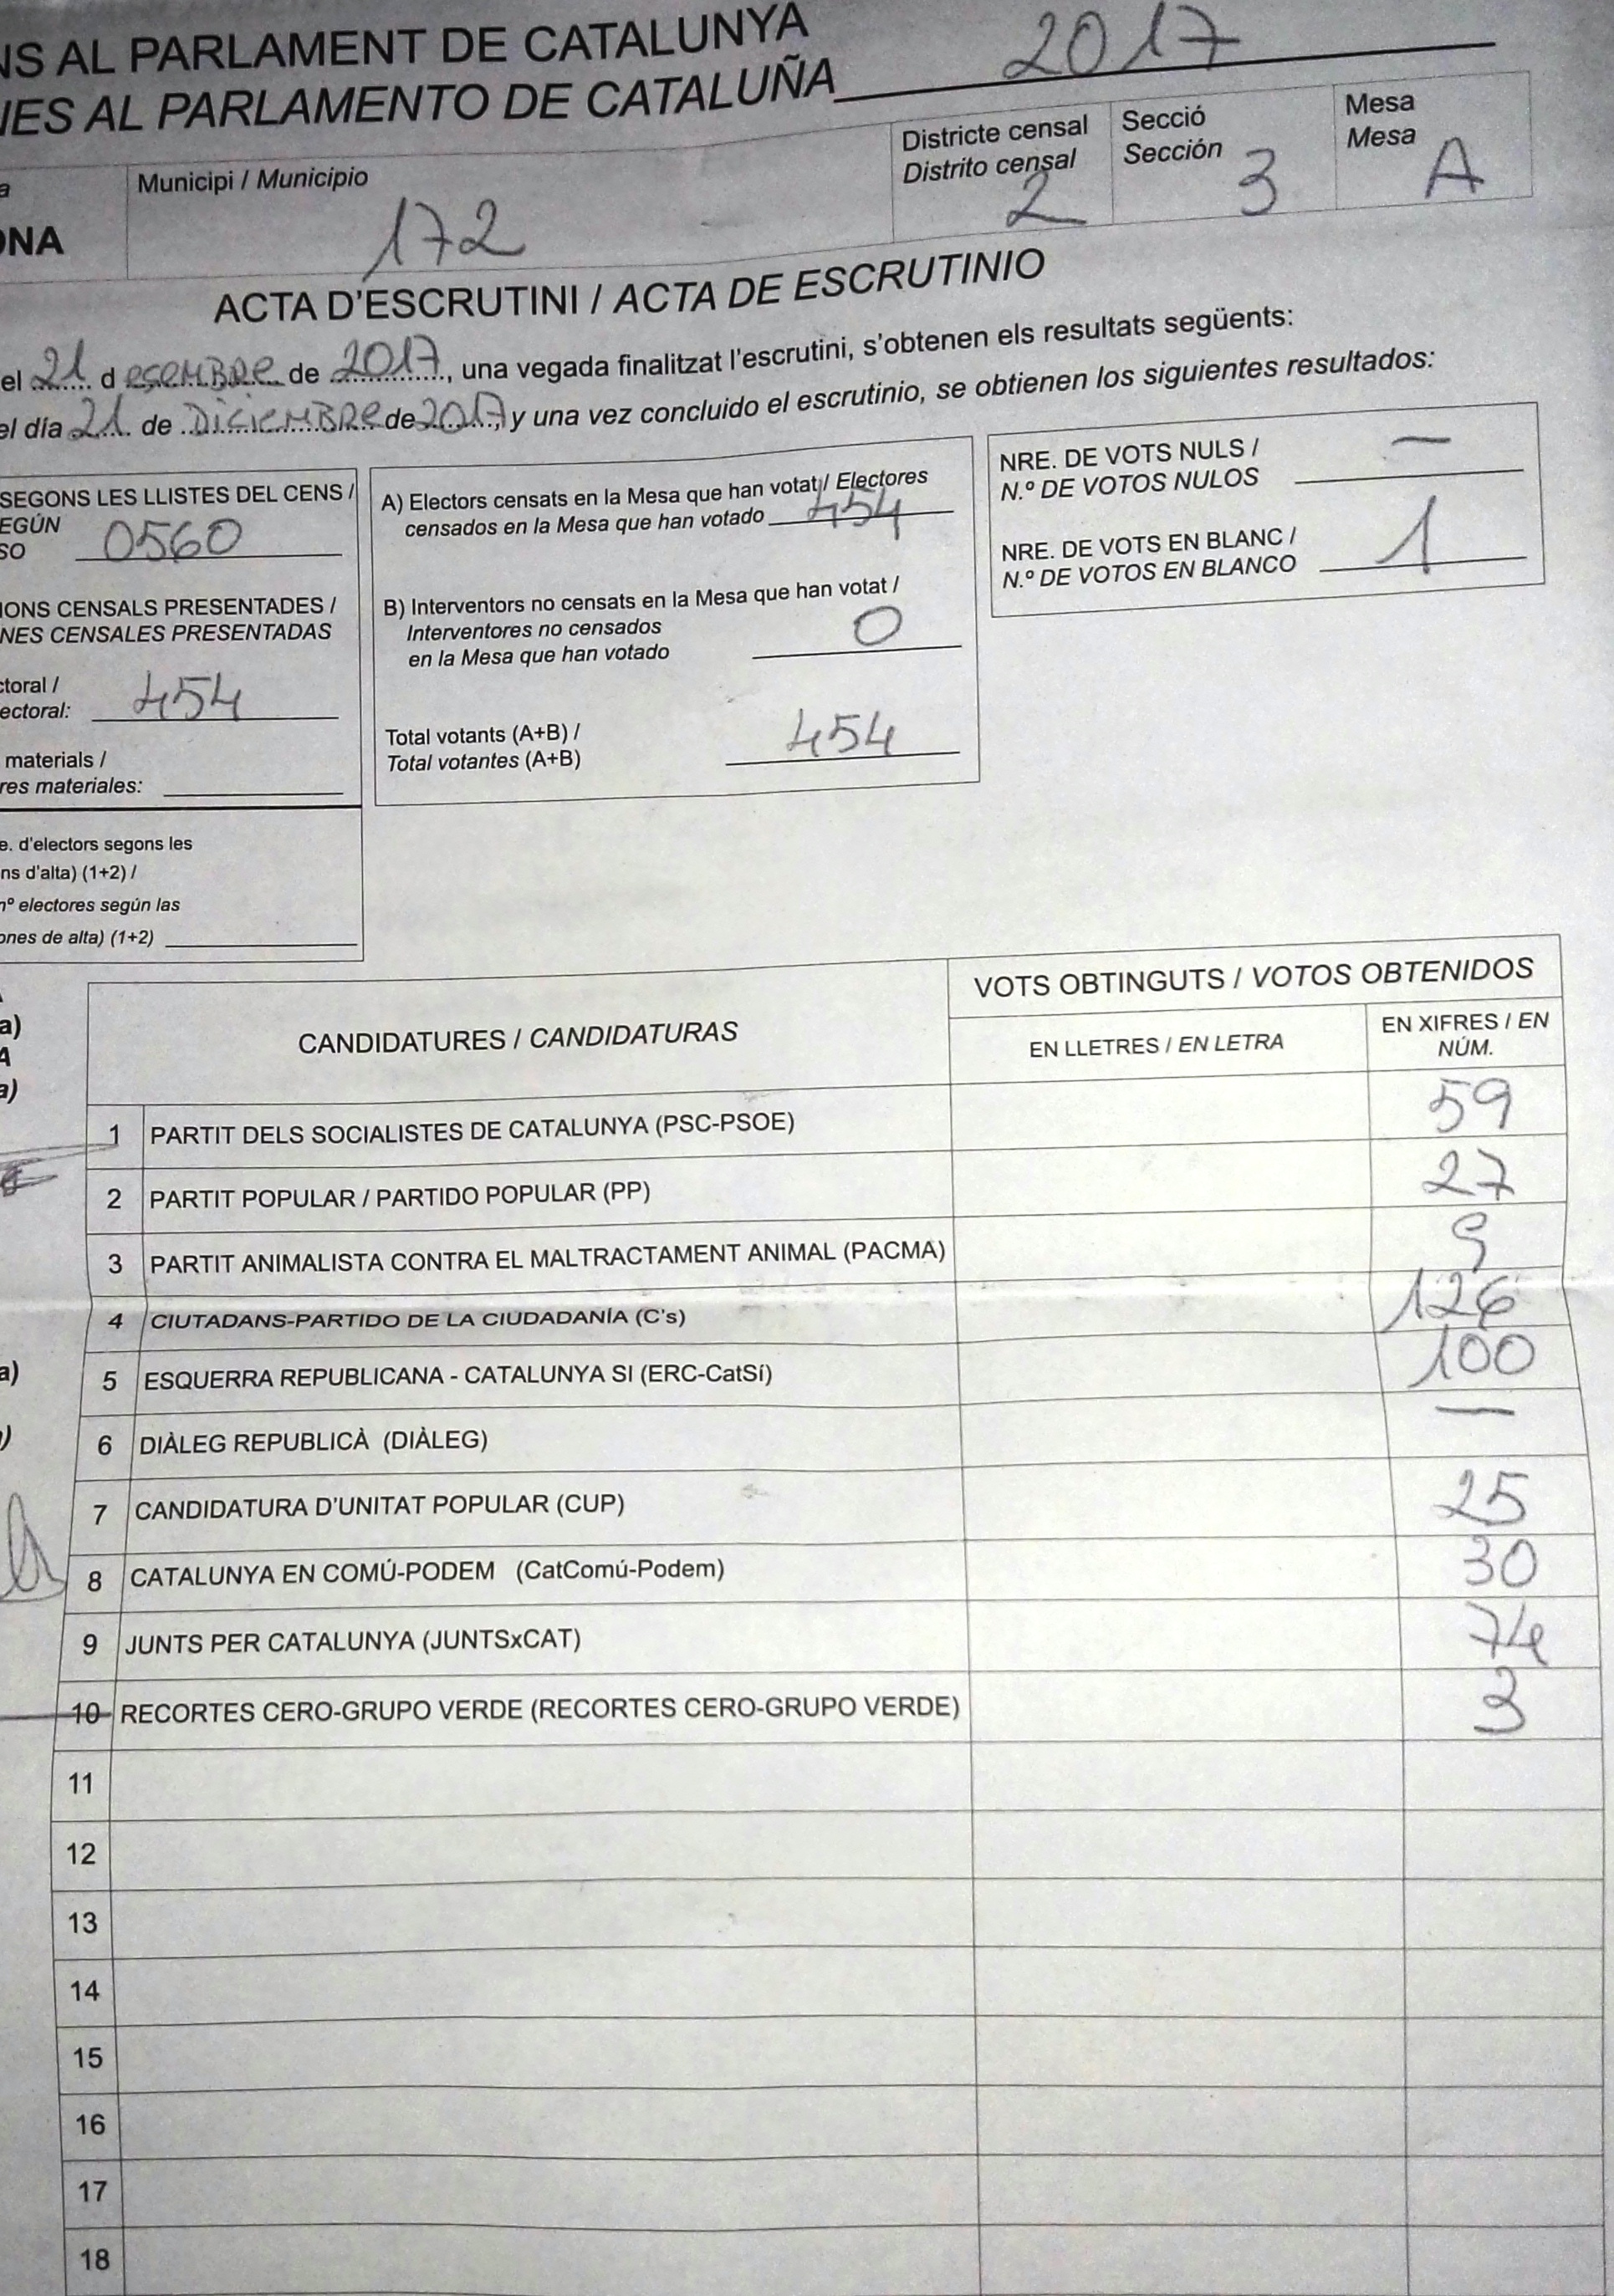 NS AL PARLAMENT DE CATALUNYA
NES AL PARLAMENTO DE CATALUÑA 2017
Municipi / Municipio
172
Districte censal
Distrito censal
2
Secció
Sección
3
Mesa
Mesa
A
ONA
ACTA D'ESCRUTINI / ACTA DE ESCRUTINIO
el 21 d esembre de 2017, una vegada finalitzat l'escrutini, s'obtenen els resultats següents:
el día 21 de Diciembre de 2017, y una vez concluido el escrutinio, se obtienen los siguientes resultados:
SEGONS LES LLISTES DEL CENS /
EGÚN
SO 0560
IONS CENSALS PRESENTADES /
NES CENSALES PRESENTADAS
ctoral /
ectoral: 454
materials /
res materiales:
e. d'electors segons les
ns d'alta) (1+2) /
nº electores según las
ones de alta) (1+2)
A) Electors censats en la Mesa que han votat / Electores
censados en la Mesa que han votado 454
B) Interventors no censats en la Mesa que han votat /
Interventores no censados
en la Mesa que han votado 0
Total votants (A+B) /
Total votantes (A+B) 454
NRE. DE VOTS NULS /
N.º DE VOTOS NULOS —
NRE. DE VOTS EN BLANC /
N.º DE VOTOS EN BLANCO 1
a)
A
a)
a)
)
CANDIDATURES / CANDIDATURAS
VOTS OBTINGUTS / VOTOS OBTENIDOS
EN LLETRES / EN LETRA
EN XIFRES / EN
NÚM.
1 PARTIT DELS SOCIALISTES DE CATALUNYA (PSC-PSOE) 59
2 PARTIT POPULAR / PARTIDO POPULAR (PP) 27
3 PARTIT ANIMALISTA CONTRA EL MALTRACTAMENT ANIMAL (PACMA) 9
4 CIUTADANS-PARTIDO DE LA CIUDADANÍA (C's) 126
5 ESQUERRA REPUBLICANA - CATALUNYA SI (ERC-CatSí) 100
6 DIÀLEG REPUBLICÀ (DIÀLEG) —
7 CANDIDATURA D'UNITAT POPULAR (CUP) 25
8 CATALUNYA EN COMÚ-PODEM (CatComú-Podem) 30
9 JUNTS PER CATALUNYA (JUNTSxCAT) 74
10 RECORTES CERO-GRUPO VERDE (RECORTES CERO-GRUPO VERDE) 3
11
12
13
14
15
16
17
18